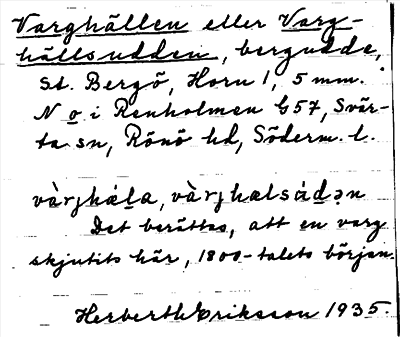 Varghällen eller Varg-
hällsudden, bergudde,
St. Bergö, Horn 1, 5 mm.
N o i Renholmen G57, Svär-
ta sn, Rönö hd, Söderm. l.
Det berättas, att en varg
skjutits här, 1800-talets början.
Herberth Eriksson 1935.